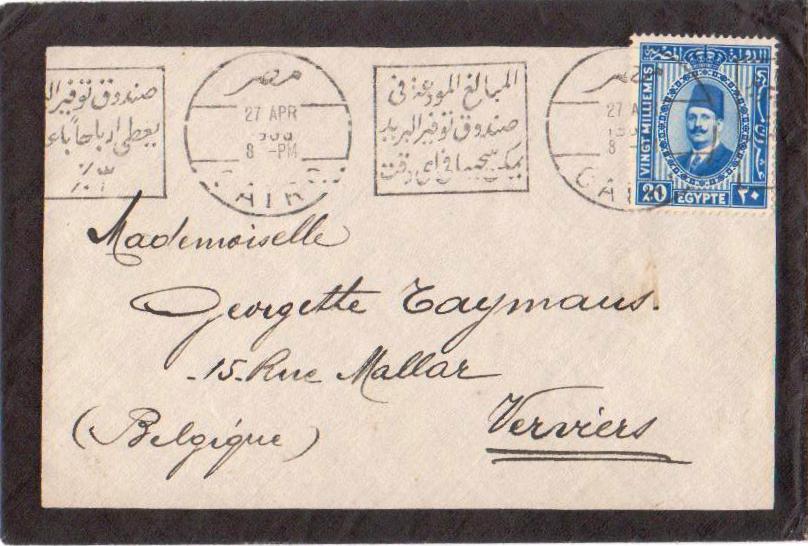 صندوق توفير ال
يعطى ارباحا باء
٪
مصر
27 APR
8 -PM
CAIRO
المبالغ المودعة فى
صندوق توفير البريد
يمكن سحبها فى اى وقت
مصر
27 A
8
CAI
VINGT MILLIEMES
20
EGYPTE
٢٠
Mademoiselle
Georgette Taymans.
-15-Rue Mallar
Verviers
(Belgique)